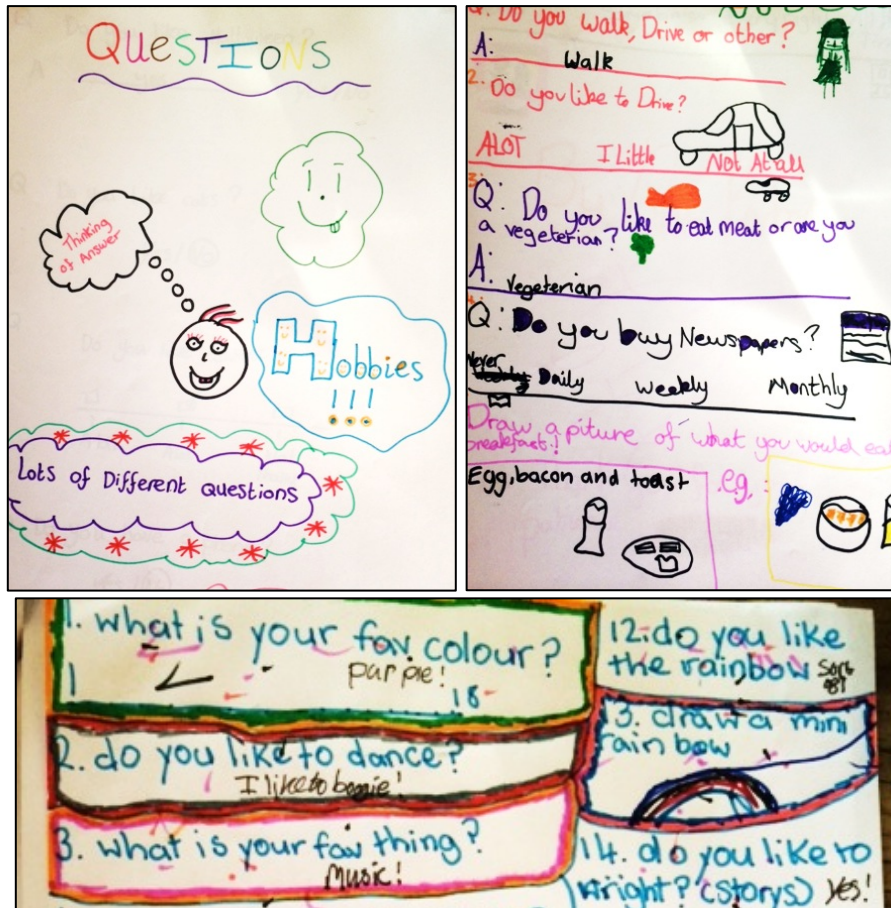 QUESTIONS
Thinking
of Answer
Hobbies
!!!
Lots of Different Questions
Q: Do you walk, Drive or other?
A: Walk
2. Do you like to Drive?
ALOT I Little Not At all
3.
Q: Do you like to eat meat or are you
a vegeterian?
A: vegeterian
4.
Q: Do you buy Newspapers?
Never Daily weekly Monthly
Draw a piture of what you would eat
breakfast!
Egg, bacon and toast .eg. :
1. what is your fav colour?
purple!
1 18
2. do you like to dance?
I like to boogie!
3. what is your fav thing?
Music!
12. do you like
the rainbow Sort
of!
13. draw a mini
rainbow
14. do you like to
wright? (storys) yes!